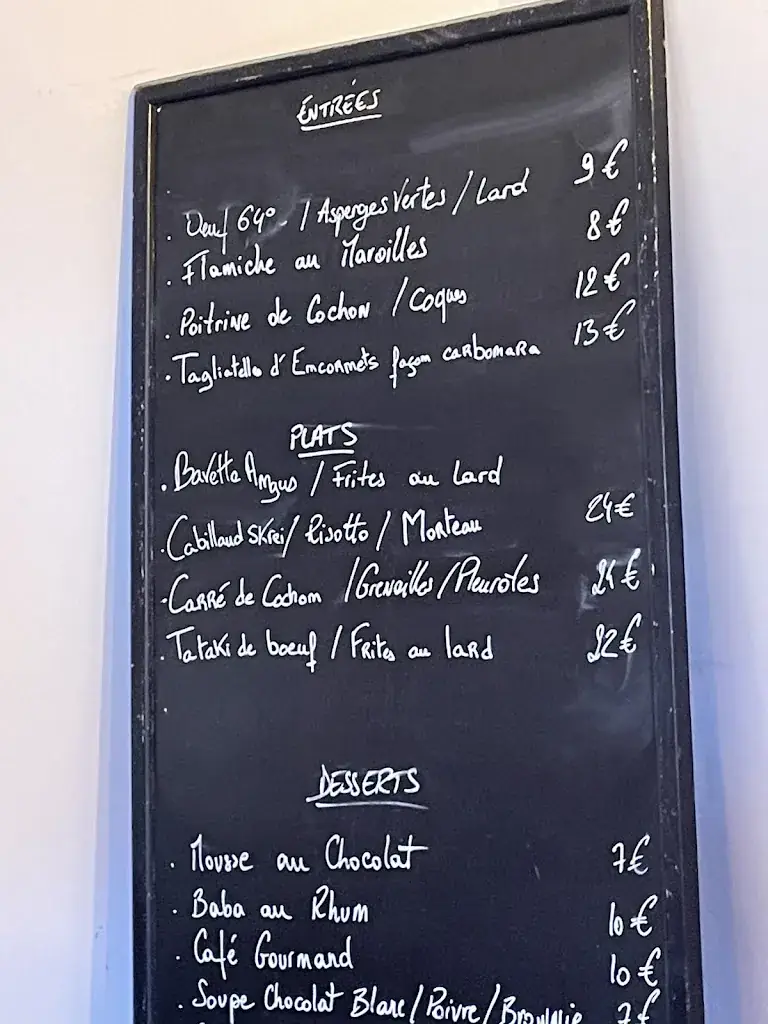 ÉNTRÉES
. Oeuf 64° / Asperges Vertes / Lard 9 €
. Flamiche au Maroilles 8 €
. Poitrine de Cochon / Coques 12 €
. Tagliatelle d'Encornets façon carbonara 13 €
PLATS
. Bavette Angus / Frites au Lard
. Cabillaud Skrei / Risotto / Morteau 24 €
. Carré de Cochon / Grenailles / Pleurotes 24 €
. Tataki de boeuf / Frites au lard 22 €
.
DESSERTS
. Mousse au Chocolat 7 €
. Baba au Rhum 10 €
. Café Gourmand 10 €
. Soupe Chocolat Blanc / Poivre / Brownie 7 €